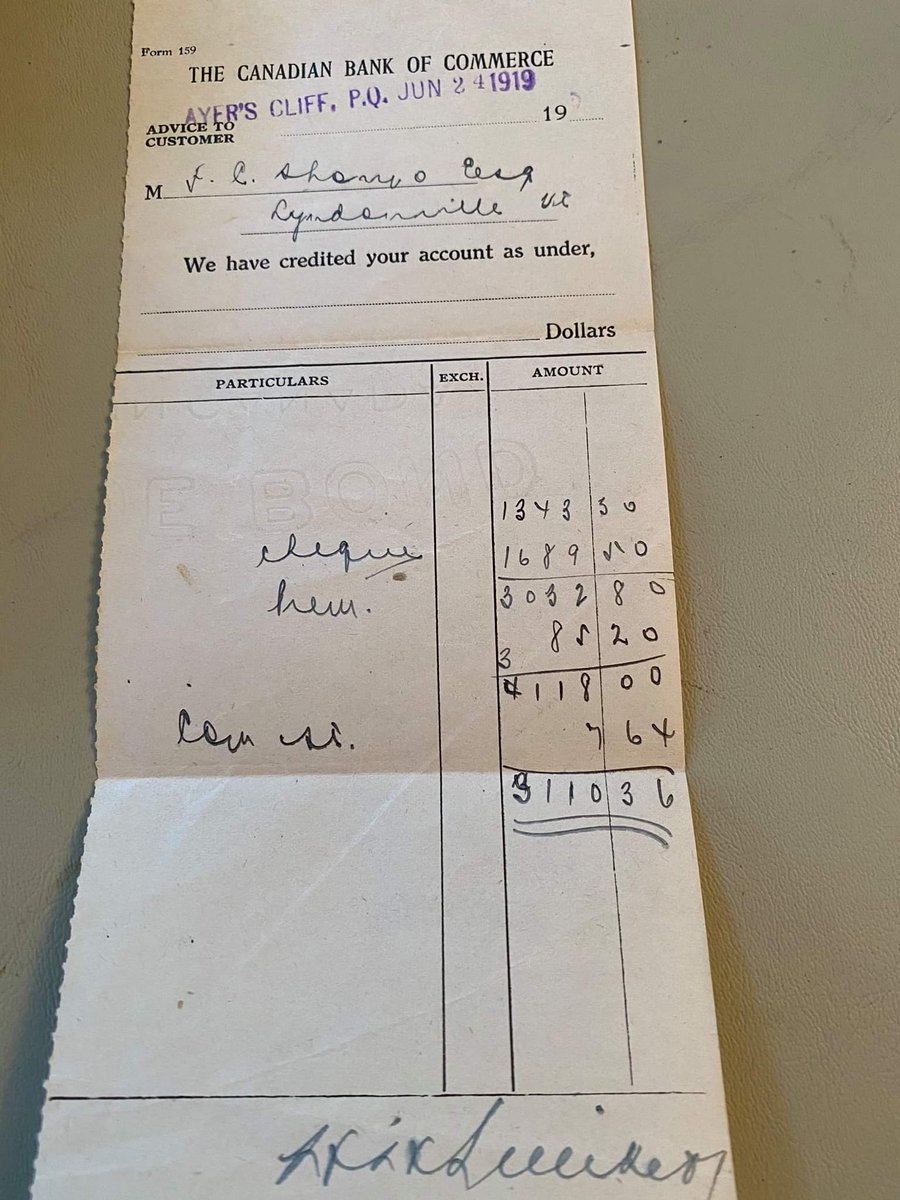 Form 159
THE CANADIAN BANK OF COMMERCE
AYER'S CLIFF, P.Q. JUN 24 1919
19
ADVICE TO
CUSTOMER
M
Esq
Lyndonville Vt
We have credited your account as under,
Dollars
PARTICULARS EXCH. AMOUNT
E BOND
1343 30
cheque 1689 50
3032 80
85 20
3
4118 00
7 64
3110 36